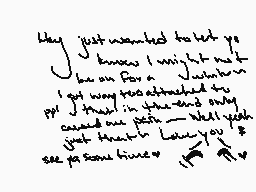 Hey just wanted to let ya
know I might not
be on for a while
I got way too attached to
ppl & that in the end only
caused me pain Well yeah
just that I Love you
see ya some time